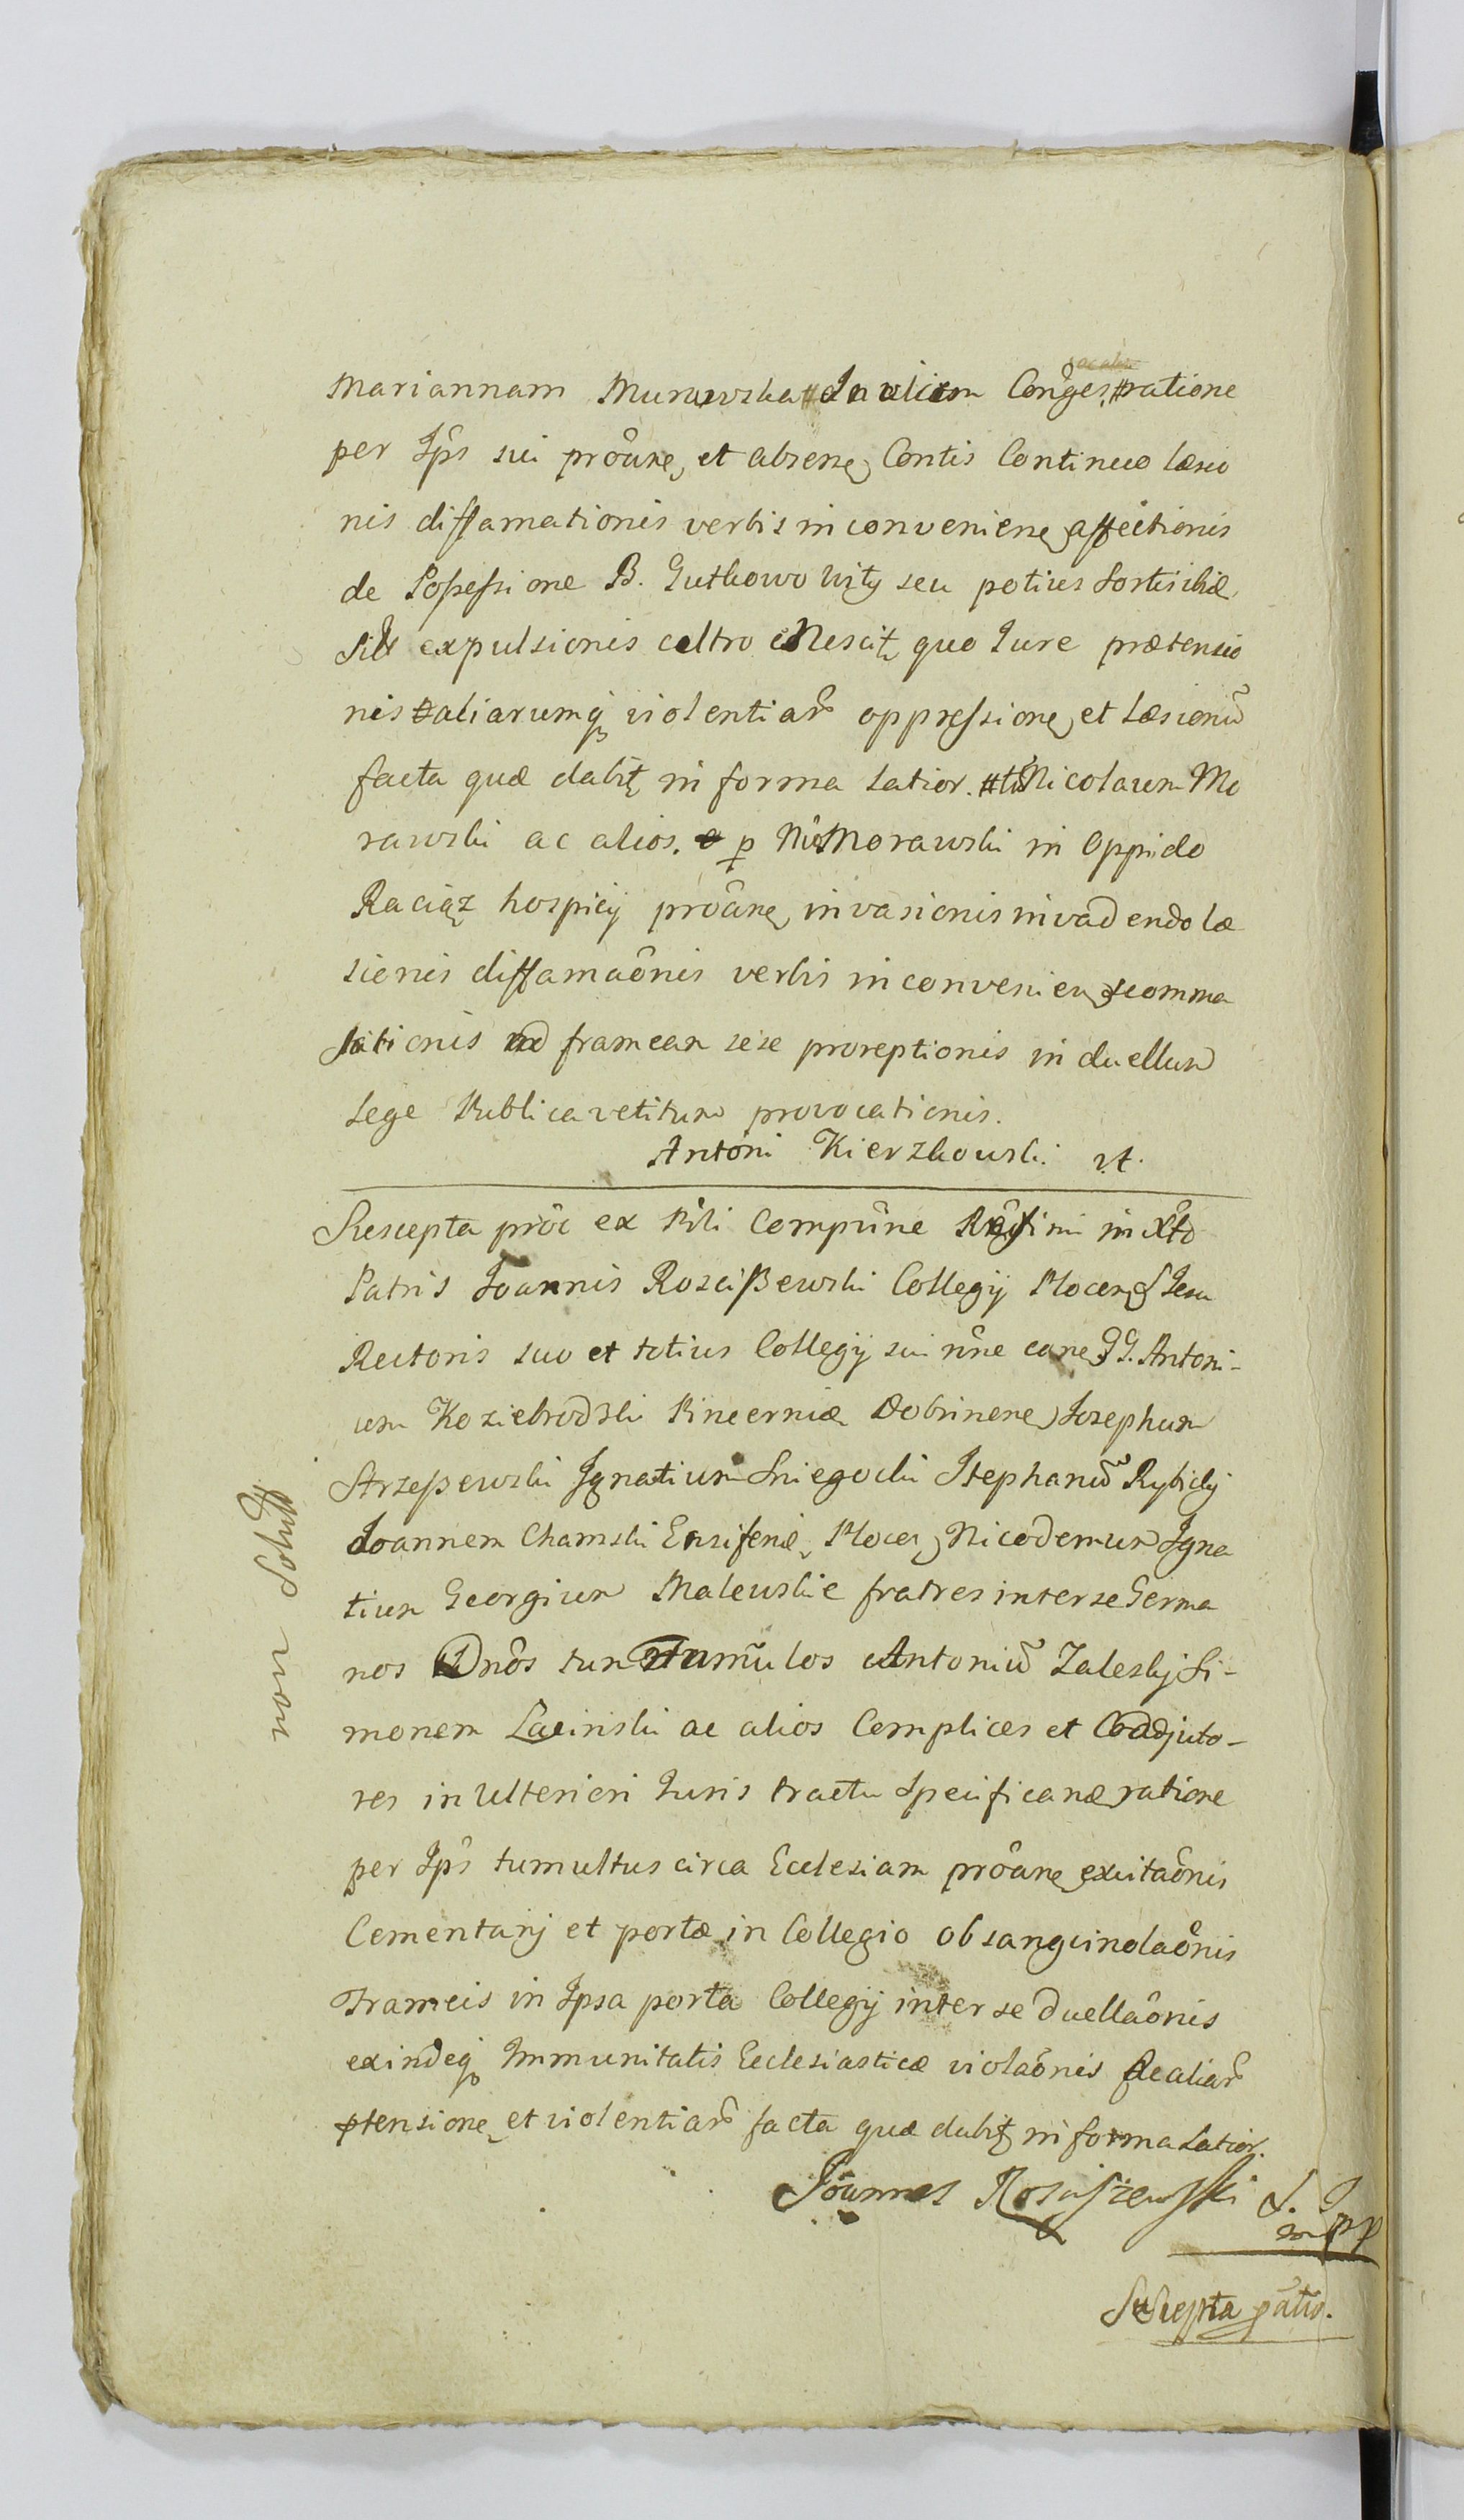 Mariannam Murawska # Conges # ratione
per Ips sui proane et absene Contis Continuo læsio
nis diffamationis verbis inconveniene affectionis
de Possessione B. Gutkowo seu potius Sortis ibidæ
expulsionis Nescit quo Iure prætensio
nis aliarumq violentiar oppressione et Læsionu
facta quæ dabit in forma Latior. # Nicolaum Mo
rawski ac alios. p Morawski in Oppido
Raciąz hospicij proane invasionis invadendo læ
sionis diffamaonis verbis inconvenien scomma
sationis ad frameam sese proreptionis in duellum
Lege Publica vetitum provocationis.
Antoni Kierzkowski
Suscepta proc ex Pili Compune Rndssimi in Xto
Patris Joannis Roscißewski Collegij Plocen S Jesu
Rectoris suo et totius Collegij sui nne cone GG. Antoni-
um Koziebrodzki Pincerniæ Dobrinene Josephum
Strzeßewski Ignatium Sniegocki Stephanu Rybicky
Joannem Chamski Ensiferiæ Plocen Nicodemum Igna
tium Georgium Malewskie fratres inter se Germa
nos Dnos tum famulos Antoniu Zalesky Si-
monem Lacinski ac alios Complices et Coadjuto-
res in Ulteriori Iuris tractu Specificanæ ratione
per Ips tumultus circa Ecclesiam proane excitaonis
Cementarij et portæ in Collegio obsanguinolaonis
Frameis in Ipsa porta Collegij inter se duellaonis
exindeq Immunitatis Ecclesiasticæ violaonis Aealiar
ptensione et violentiar facta quæ dabit in forma Latior.
non Solutt
Joannes Rosciszewski S. J
mpp
Suscepta